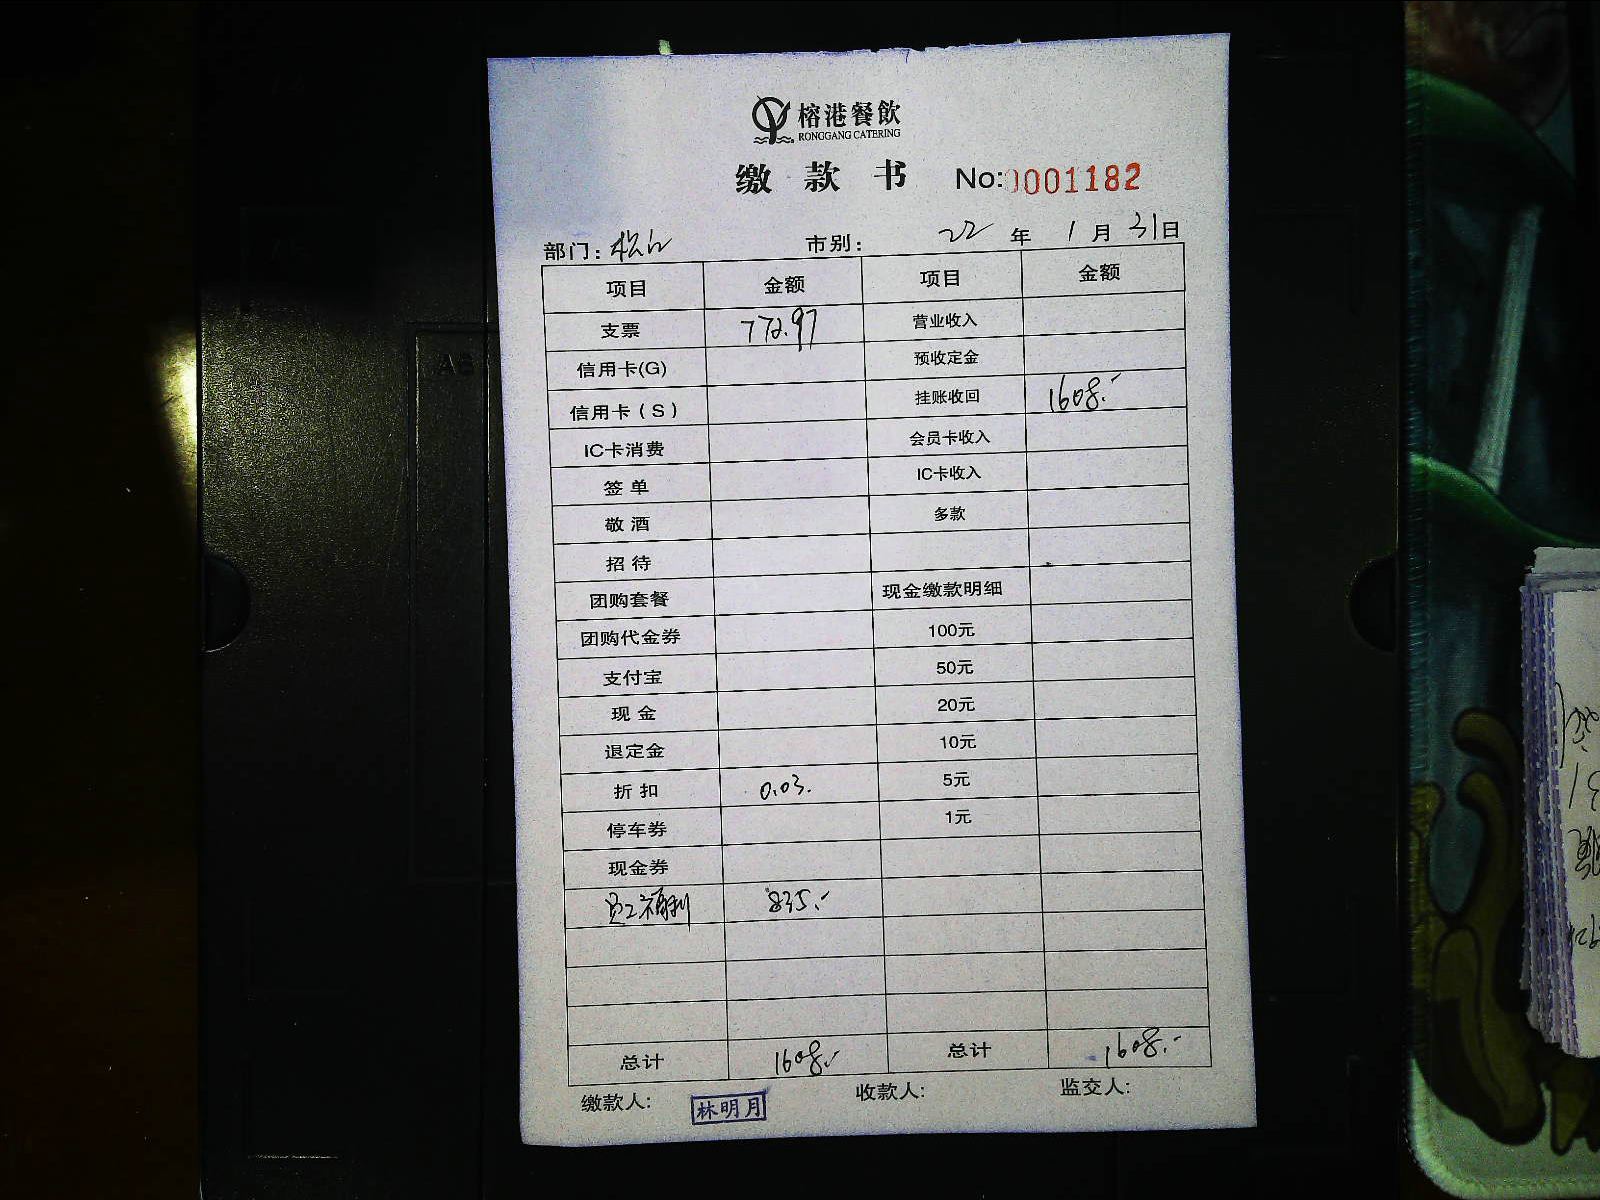 榕港餐飲
RONGGANG CATERING
缴款书 No:0001182
部门：松江 市别： 22 年 1 月 31 日
项目 金额 项目 金额
支票 772.97 营业收入
信用卡(G) 预收定金
信用卡（S） 挂账收回 1608.-
IC卡消费 会员卡收入
签单 IC卡收入
敬酒 多款
招待
团购套餐 现金缴款明细
团购代金券 100元
支付宝 50元
现金 20元
退定金 10元
折扣 0.03. 5元
停车券 1元
现金券
员工福利 835.-
总计 1608.- 总计 1608.-
缴款人: 林明月 收款人: 监交人:
A6
31